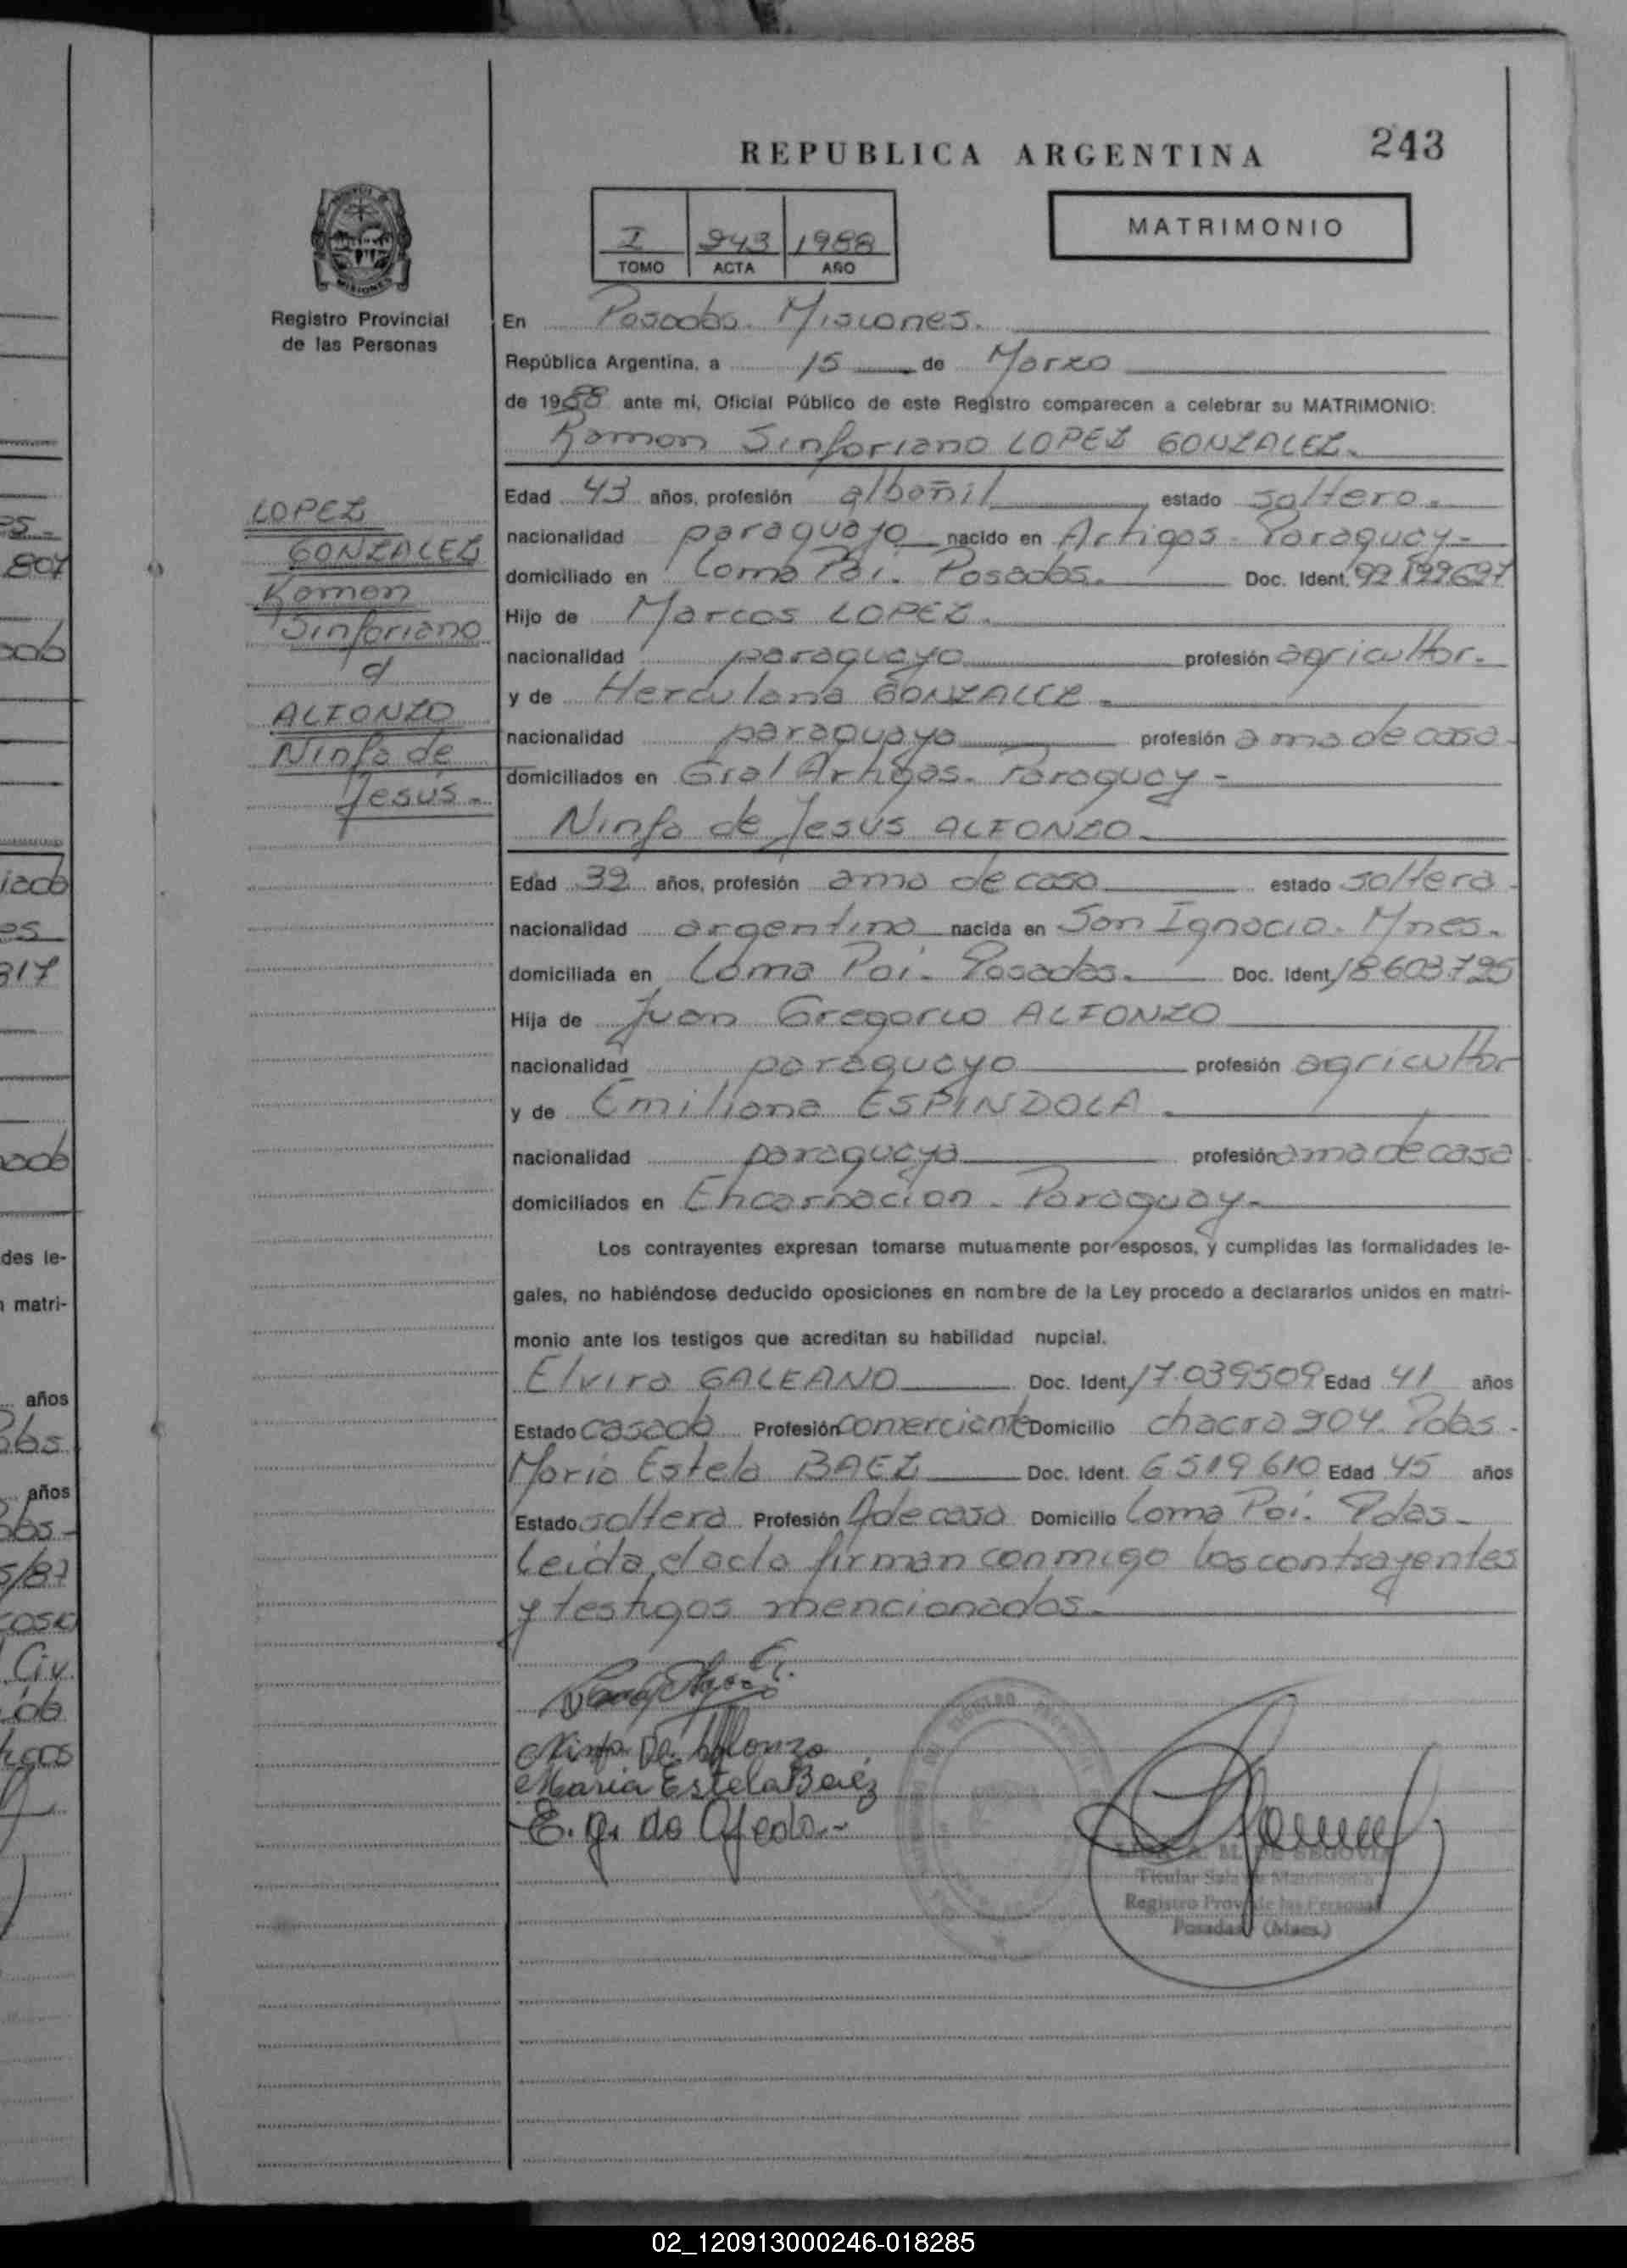 REPUBLICA ARGENTINA 243
MATRIMONIO
I 243 1988
TOMO ACTA AÑO
MISIONES
Registro Provincial
de las Personas
En Posadas. Misiones.
República Argentina, a 15 de Marzo
de 1988 ante mi, Oficial Público de este Registro comparecen a celebrar su MATRIMONIO:
Ramon Sinforiano LOPEZ GONZALEZ.
Edad 43 años, profesión albañil estado soltero.
nacionalidad paraguayo nacido en Artigas - Paraguay-
domiciliado en Loma Poi. Posadas. Doc. Ident.
Hijo de Marcos LOPEZ.
nacionalidad paraguayo profesión agricultor.
y de Herculana GONZALEZ
nacionalidad paraguaya profesión ama de casa
domiciliados en Gral Artigas. Paraguay -
LOPEZ
GONZALEZ
Ramon
Sinforiano
ALFONZO
Ninfa de
Jesús.-
Ninfa de Jesús ALFONZO.
Edad 39 años, profesión ama de casa estado soltera
nacionalidad argentina nacida en San Ignacio. Mnes.
domiciliada en Loma Poi. Posadas. Doc. Ident 18603.795
Hija de Juan Gregorio ALFONZO
nacionalidad paraguayo profesión agricultor
y de Emiliana ESPINDOLA.
nacionalidad paraguaya profesión ama de casa
domiciliados en Encarnacion - Paraguay-
Los contrayentes expresan tomarse mutuamente por esposos, y cumplidas las formalidades le-
gales, no habiéndose deducido oposiciones en nombre de la Ley procedo a declararlos unidos en matri-
monio ante los testigos que acreditan su habilidad nupcial.
Elvira GALEANO Doc. Ident 17.039509 Edad 41 años
Estado casada Profesión comerciante Domicilio chacra 904. Pdas.
Maria Estela BAEZ Doc. Ident. 6519610 Edad 45 años
Estado soltera Profesión A de casa Domicilio Loma Poi. Pdas.
Leida, el acta firman conmigo los contrayentes
y testigos mencionados.
Ninfa De Alfonzo
Maria Estela Baéz
E. g. de Ojeda.-
M. DE SEGOVIA
Titular Sala de Matrimonio
Registro Prov de las Personas
Posadas (Mnes.)
des le-
matri-
años
años
02_120913000246-018285